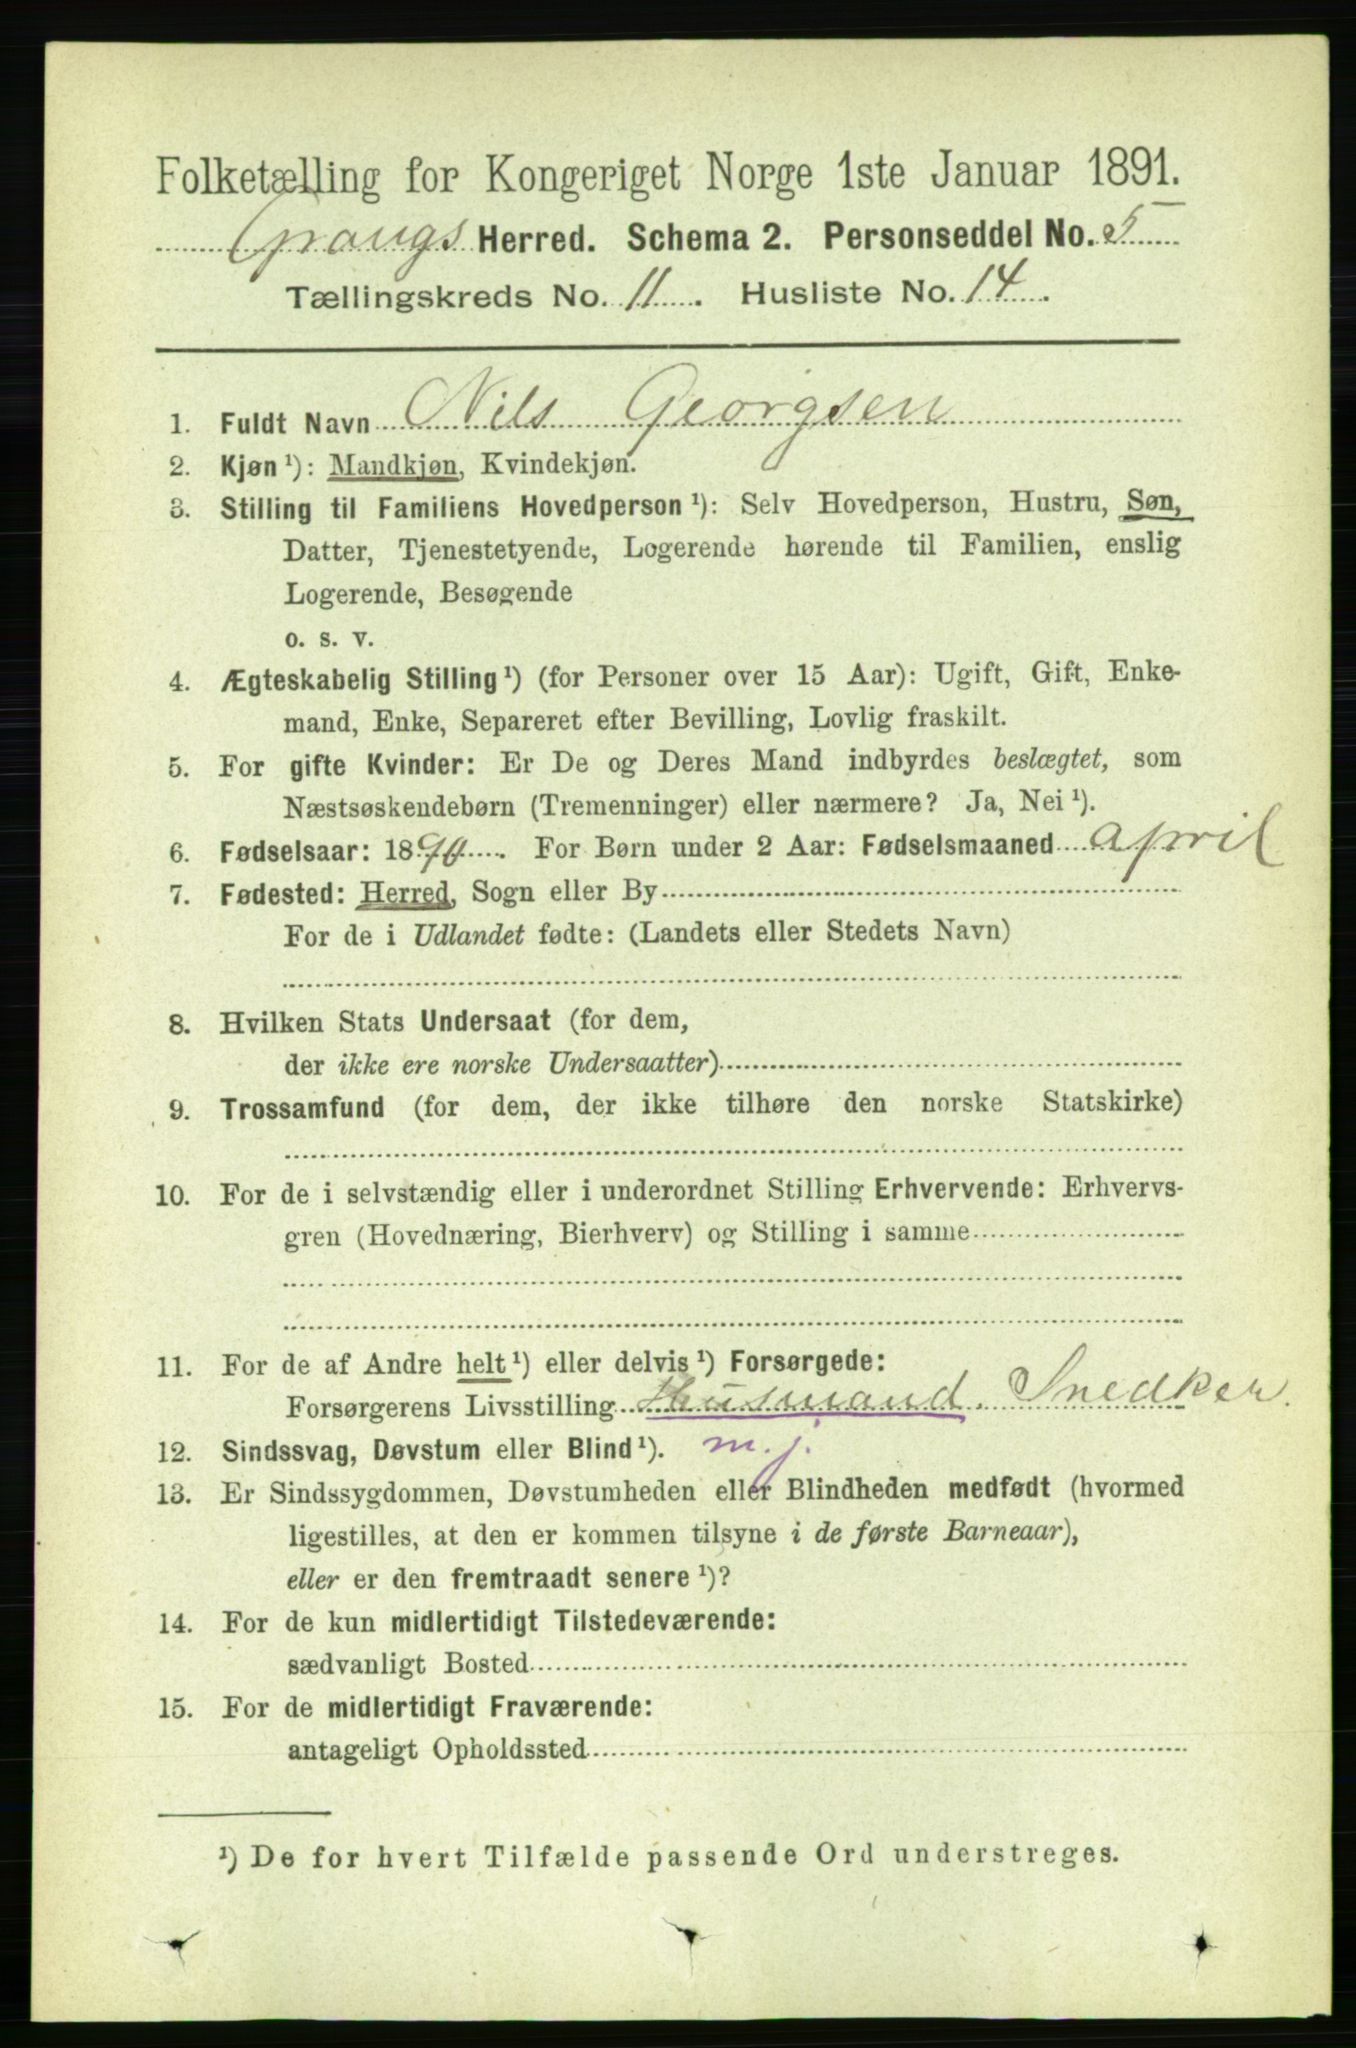 Folketælling for Kongeriget Norge 1ste Januar 1891.
Herred. Schema 2. Personseddel No. 5
Tællingskreds No. 11. Husliste No. 14.
1. Fuldt Navn Nils Georgsen
2. Kjøn ¹): Mandkjøn, Kvindekjøn.
3. Stilling til Familiens Hovedperson ¹): Selv Hovedperson, Hustru, Søn,
Datter, Tjenestetyende, Logerende hørende til Familien, enslig
Logerende, Besøgende
o. s. v.
4. Ægteskabelig Stilling ¹) (for Personer over 15 Aar): Ugift, Gift, Enke-
mand, Enke, Separeret efter Bevilling, Lovlig fraskilt.
5. For gifte Kvinder: Er De og Deres Mand indbyrdes beslægtet, som
Næstsøskendebørn (Tremenninger) eller nærmere? Ja, Nei ¹).
6. Fødselsaar: 1890. For Børn under 2 Aar: Fødselsmaaned April
7. Fødested: Herred, Sogn eller By
For de i Udlandet fødte: (Landets eller Stedets Navn)
8. Hvilken Stats Undersaat (for dem,
der ikke ere norske Undersaatter)
9. Trossamfund (for dem, der ikke tilhøre den norske Statskirke)
10. For de i selvstændig eller i underordnet Stilling Erhvervende: Erhvervs-
gren (Hovednæring, Bierhverv) og Stilling i samme
11. For de af Andre helt ¹) eller delvis ¹) Forsørgede:
Forsørgerens Livsstilling Husmand. Snedker.
12. Sindssvag, Døvstum eller Blind ¹). m. j.
13. Er Sindssygdommen, Døvstumheden eller Blindheden medfødt (hvormed
ligestilles, at den er kommen tilsyne i de første Barneaar),
eller er den fremtraadt senere ¹)?
14. For de kun midlertidigt Tilstedeværende:
sædvanligt Bosted
15. For de midlertidigt Fraværende:
antageligt Opholdssted
¹) De for hvert Tilfælde passende Ord understreges.